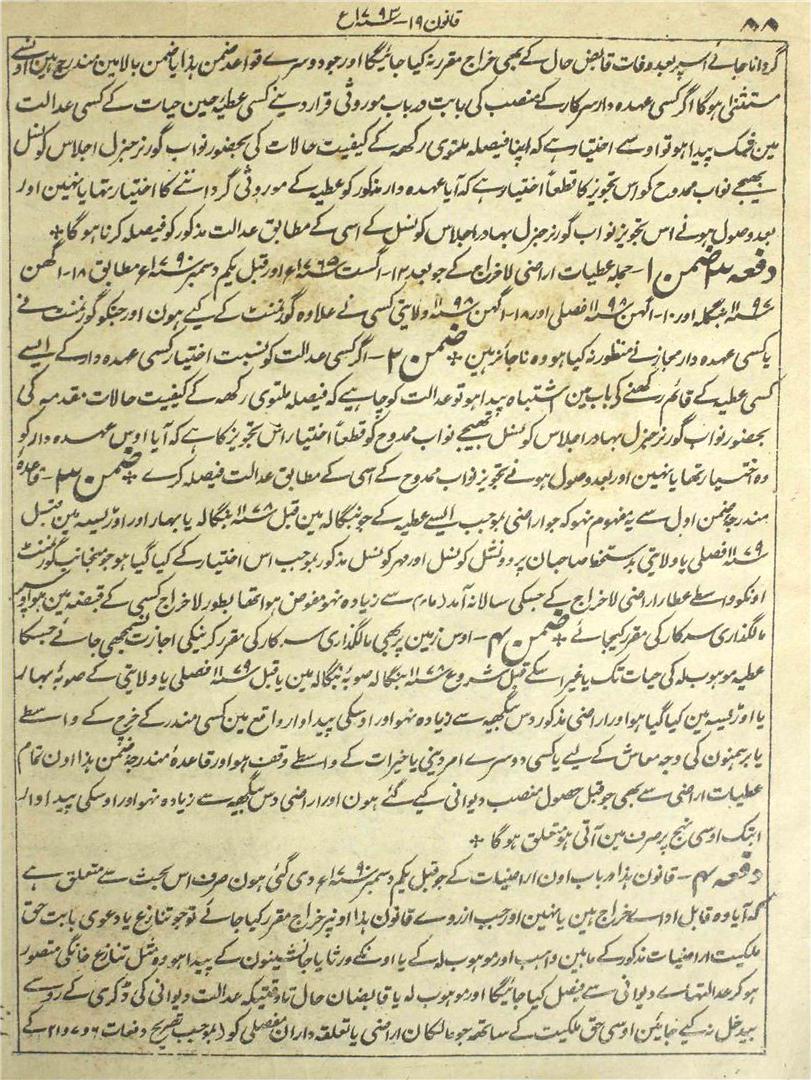 ۸۸ قانون ۱۹ - ۱۷۹۳ء
گردانا جائے اسپر بعد وفات قابض حال کے بھی خراج مقرر نہ کیا جائیگا اور جو دوسرے قواعد ضمن ہذا یا ضمن بالا مین مندرج ہین اونسے
مستثنیٰ ہوگا اگر کسی عہدہ دار سرکار کے منصب کی بابت در باب موروثی قرار دینے کسی عطیۂ حین حیات کے کسی عدالت
مین شک پیدا ہو تو اوسے اختیار ہے کہ اپنا فیصلہ ملتوی رکھہ کے کیفیت حالات کی بحضور نواب گورنر جنرل اجلاس کونسل
بھیجے نواب ممدوح کو اس تجویز کا قطعاً اختیار ہے کہ آیا عہدہ دار مذکور کو عطیہ کے موروثی گرداننے کا اختیار تھا یا نہین اور
بعد وصول ہونے اس تجویز نواب گورنر جنرل بہادر اجلاس کونسل کے اسی کے مطابق عدالت مذکور کو فیصلہ کرنا ہوگا *
دفعہ ۳ ضمن ۱ - جملہ عطیات اراضی لاخراج کے جو بعد ۱۲ - اگست ۱۷۶۵ء اور قبل یکم دسمبر ۱۷۹۰ء مطابق ۱۸ - اگھن
۱۱۹۷ بنگلہ اور ۱۰ - اگھن ۱۱۹۸ فصلی اور ۱۸ - اگھن ۱۱۹۸ ولایتی کسی نے علاوہ گورنمنٹ کے کیے ہون اور جنکو گورنمنٹ نے
یا کسی عہدہ دار مجاز نے منظور نہ کیا ہو وہ ناجائز ہین * ضمن ۲ - اگر کسی عدالت کو نسبت اختیار کسی عہدہ دار کے ایسے
کسی عطیہ کے قائم رکھنے کی باب مین اشتباہ پیدا ہو تو عدالت کو چاہیے کہ فیصلہ ملتوی رکھہ کے کیفیت حالات مقدمہ کی
بحضور نواب گورنر جنرل بہادر اجلاس کونسل بھیجے نواب ممدوح کو قطعاً اختیار اس تجویز کا ہے کہ آیا اوس عہدہ دار کو
وہ اختیار تھا یا نہین اور بعد وصول ہونے تجویز نواب ممدوح کے اسی کے مطابق عدالت فیصلہ کرے * ضمن ۳ - قاعدۂ
مندرجۂ ضمن اول سے یہ مفہوم نہو کہ جو اراضی بموجب ایسے عطیہ کے جو بنگالہ مین قبل ۱۱۷۸ بنگالہ یا بہار اور اوڑیسہ مین قبل
۱۱۷۹ فصلی یا ولایتی بدستخط صاحبان پروونشل کونسل اور مہر کونسل مذکور بموجب اس اختیار کے کیا گیا ہو جو منجانب گورنمنٹ
اونکو واسطے عطا اراضی لاخراج کے جسکی سالانہ آمد (ما۔) سے زیادہ نہو مفوض ہوا تھا بطور لاخراج کسی کے قبضہ مین ہو اوسپر
مالگذاری سرکار کی مقرر کیجائے * ضمن ۴ - اوس زمین پر بھی مالگذاری سرکار کی مقرر کرنیکی اجازت نسمجھی جائے جسکا
عطیہ موہوب لہ کی حیات تک یا غیر اسکے قبل شروع ۱۱۷۸ بنگالہ صوبۂ بنگالہ مین یا قبل ۱۱۷۹ فصلی یا ولایتی کے صوبۂ بہار
یا اوڑیسہ مین کیا گیا ہو اور اراضی مذکور دس بیگھہ سے زیادہ نہو اور اوسکی پیداوار واقع مین کسی مندر کے خرچ کے واسطے
یا برہمنون کی وجہ معاش کے لیے یا کسی دوسرے امر دینی یا خیرات کے واسطے وقف ہو اور قاعدۂ مندرجۂ ضمن ہذا اون تمام
عطیات اراضی سے بھی جو قبل حصول منصب دیوانی کیے گئے ہون اور اراضی دس بیگھہ سے زیادہ نہو اور اوسکی پیداوار
ابتک اوسی نہج پر صرف مین آتی ہو متعلق ہوگا *
دفعہ ۴ - قانون ہذا در باب اون اراضیات کے جو قبل یکم دسمبر ۱۷۹۰ء دی گئی ہون صرف اس بحث سے متعلق ہے
کہ آیا وہ قابل اداے خراج ہین یا نہین اور جب ازروے قانون ہذا اونپر خراج مقرر کیا جائے تو جو تنازع یا دعوی بابت حق
ملکیت اراضیات مذکور کے مابین واہب اور موہوب لہ کے یا اونکے ورثا یا جانشینون کے پیدا ہو وہ مثل تنازع خانگی متصور
ہو کر عدالتہاے دیوانی سے فیصل کیا جائیگا اور موہوب لہ یا قابضان حال تاوقتیکہ عدالت دیوانی کی ڈکری کے روسے
بیدخل نہ کیے جایئن اوسی حق ملکیت کے ساتھہ جو مالکان اراضی یا تعلقہ داران مفصلی کو (بموجب تصریح دفعات ۶ و ۷ و ۲۱ کے